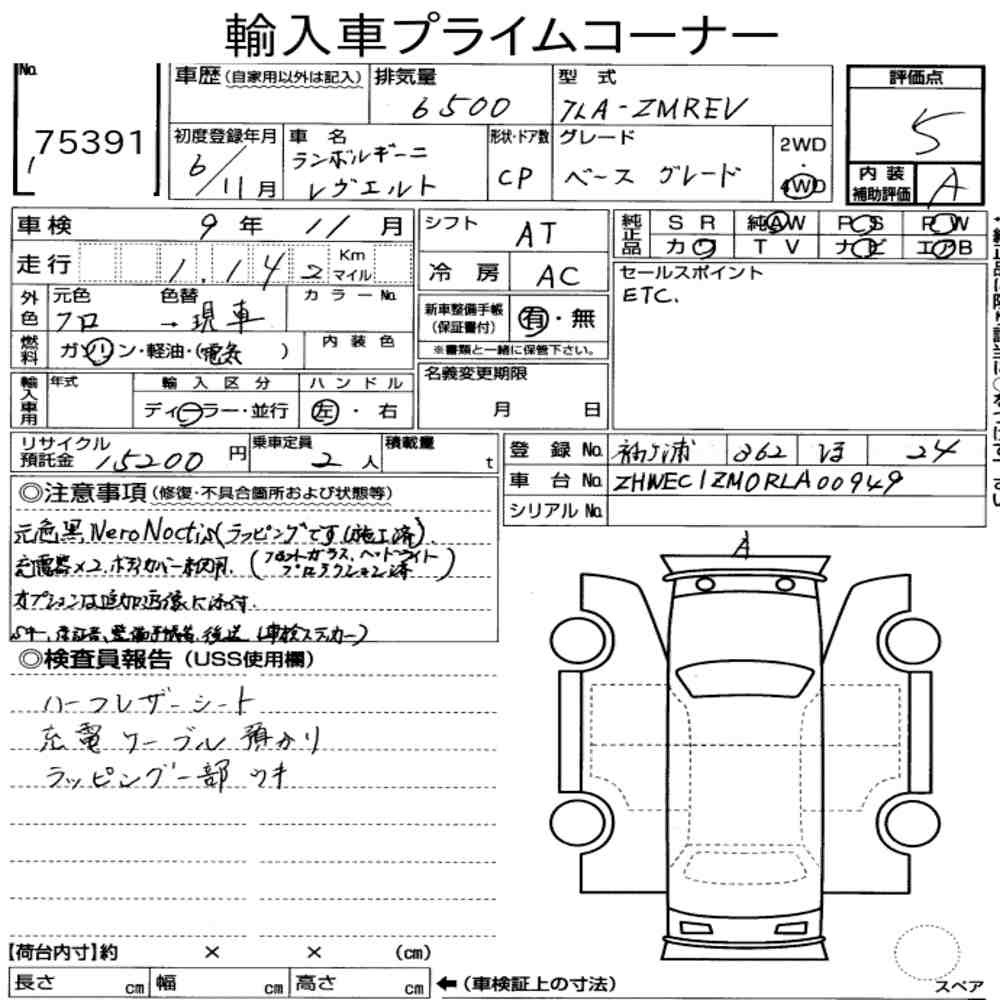 輸入車プライムコーナー
No.
75391
1
車歴(自家用以外は記入)
排気量
6500
型式
7LA-ZMREV
評価点
5
初度登録年月
6/11月
車名
ランボルギーニ
レヴエルト
形状・ドア数
CP
グレード
ベース グレード
2WD
・
4WD
内装
補助評価
A
車検 9年 11月
シフト
AT
純正品
SR
純AW
PS
PW
カワ
TV
ナビ
エアB
走行
1.142
Km
マイル
冷房
AC
セールスポイント
ETC.
外色
元色
色替
カラーNo.
クロ → 現車
新車整備手帳
(保証書付)
有・無
※書類と一緒に保管下さい。
燃料
ガソリン・軽油・(電気)
内装色
名義変更期限
月 日
輸入車用
年式
輸入区分
ハンドル
ディーラー・並行
左・右
リサイクル
預託金
15200円
乗車定員
2人
積載量
t
登録No.
袖ヶ浦 362 ほ 24
車台No.
ZHWEC1ZM0RLA00949
シリアルNo.
◎注意事項(修復・不具合箇所および状態等)
元色黒 Nero Noctis(ラッピングです(施工済)
充電器×2、ボディカバー未使用。(フロントガラス、ヘッドライト
プロテクション済)
オプションは追加画像に添付.
Sキー、保証書、整備手帳、後送(車検ステッカー)
◎検査員報告(USS使用欄)
ハーフレザーシート
充電ケーブル預かり
ラッピング一部ウキ
A
【荷台内寸】約 × × (cm)
長さ cm
幅 cm
高さ cm
←(車検証上の寸法)
スペア